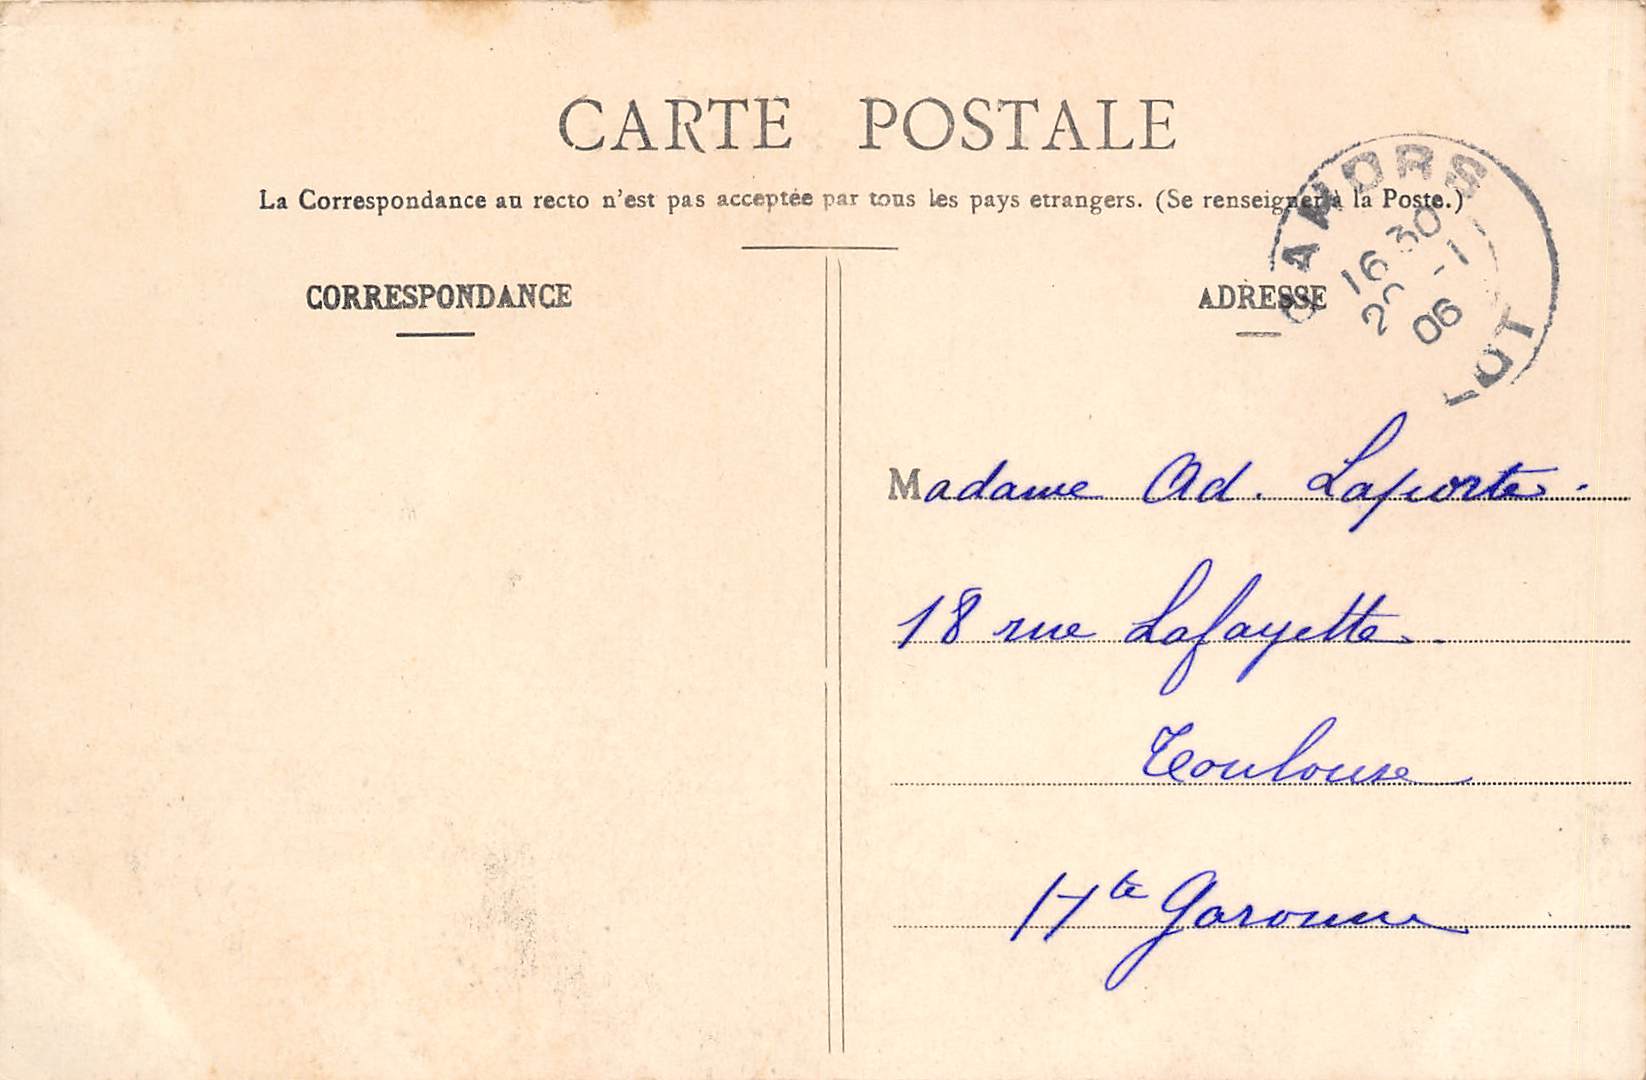 CARTE POSTALE
La Correspondance au recto n'est pas acceptée par tous les pays etrangers. (Se renseigner à la Poste.)
CORRESPONDANCE
ADRESSE
CAHORS
16 30
-1
06
LOT
Madame Ad. Laporte.
18 rue Lafayette.
Toulouse
Hte Garonne